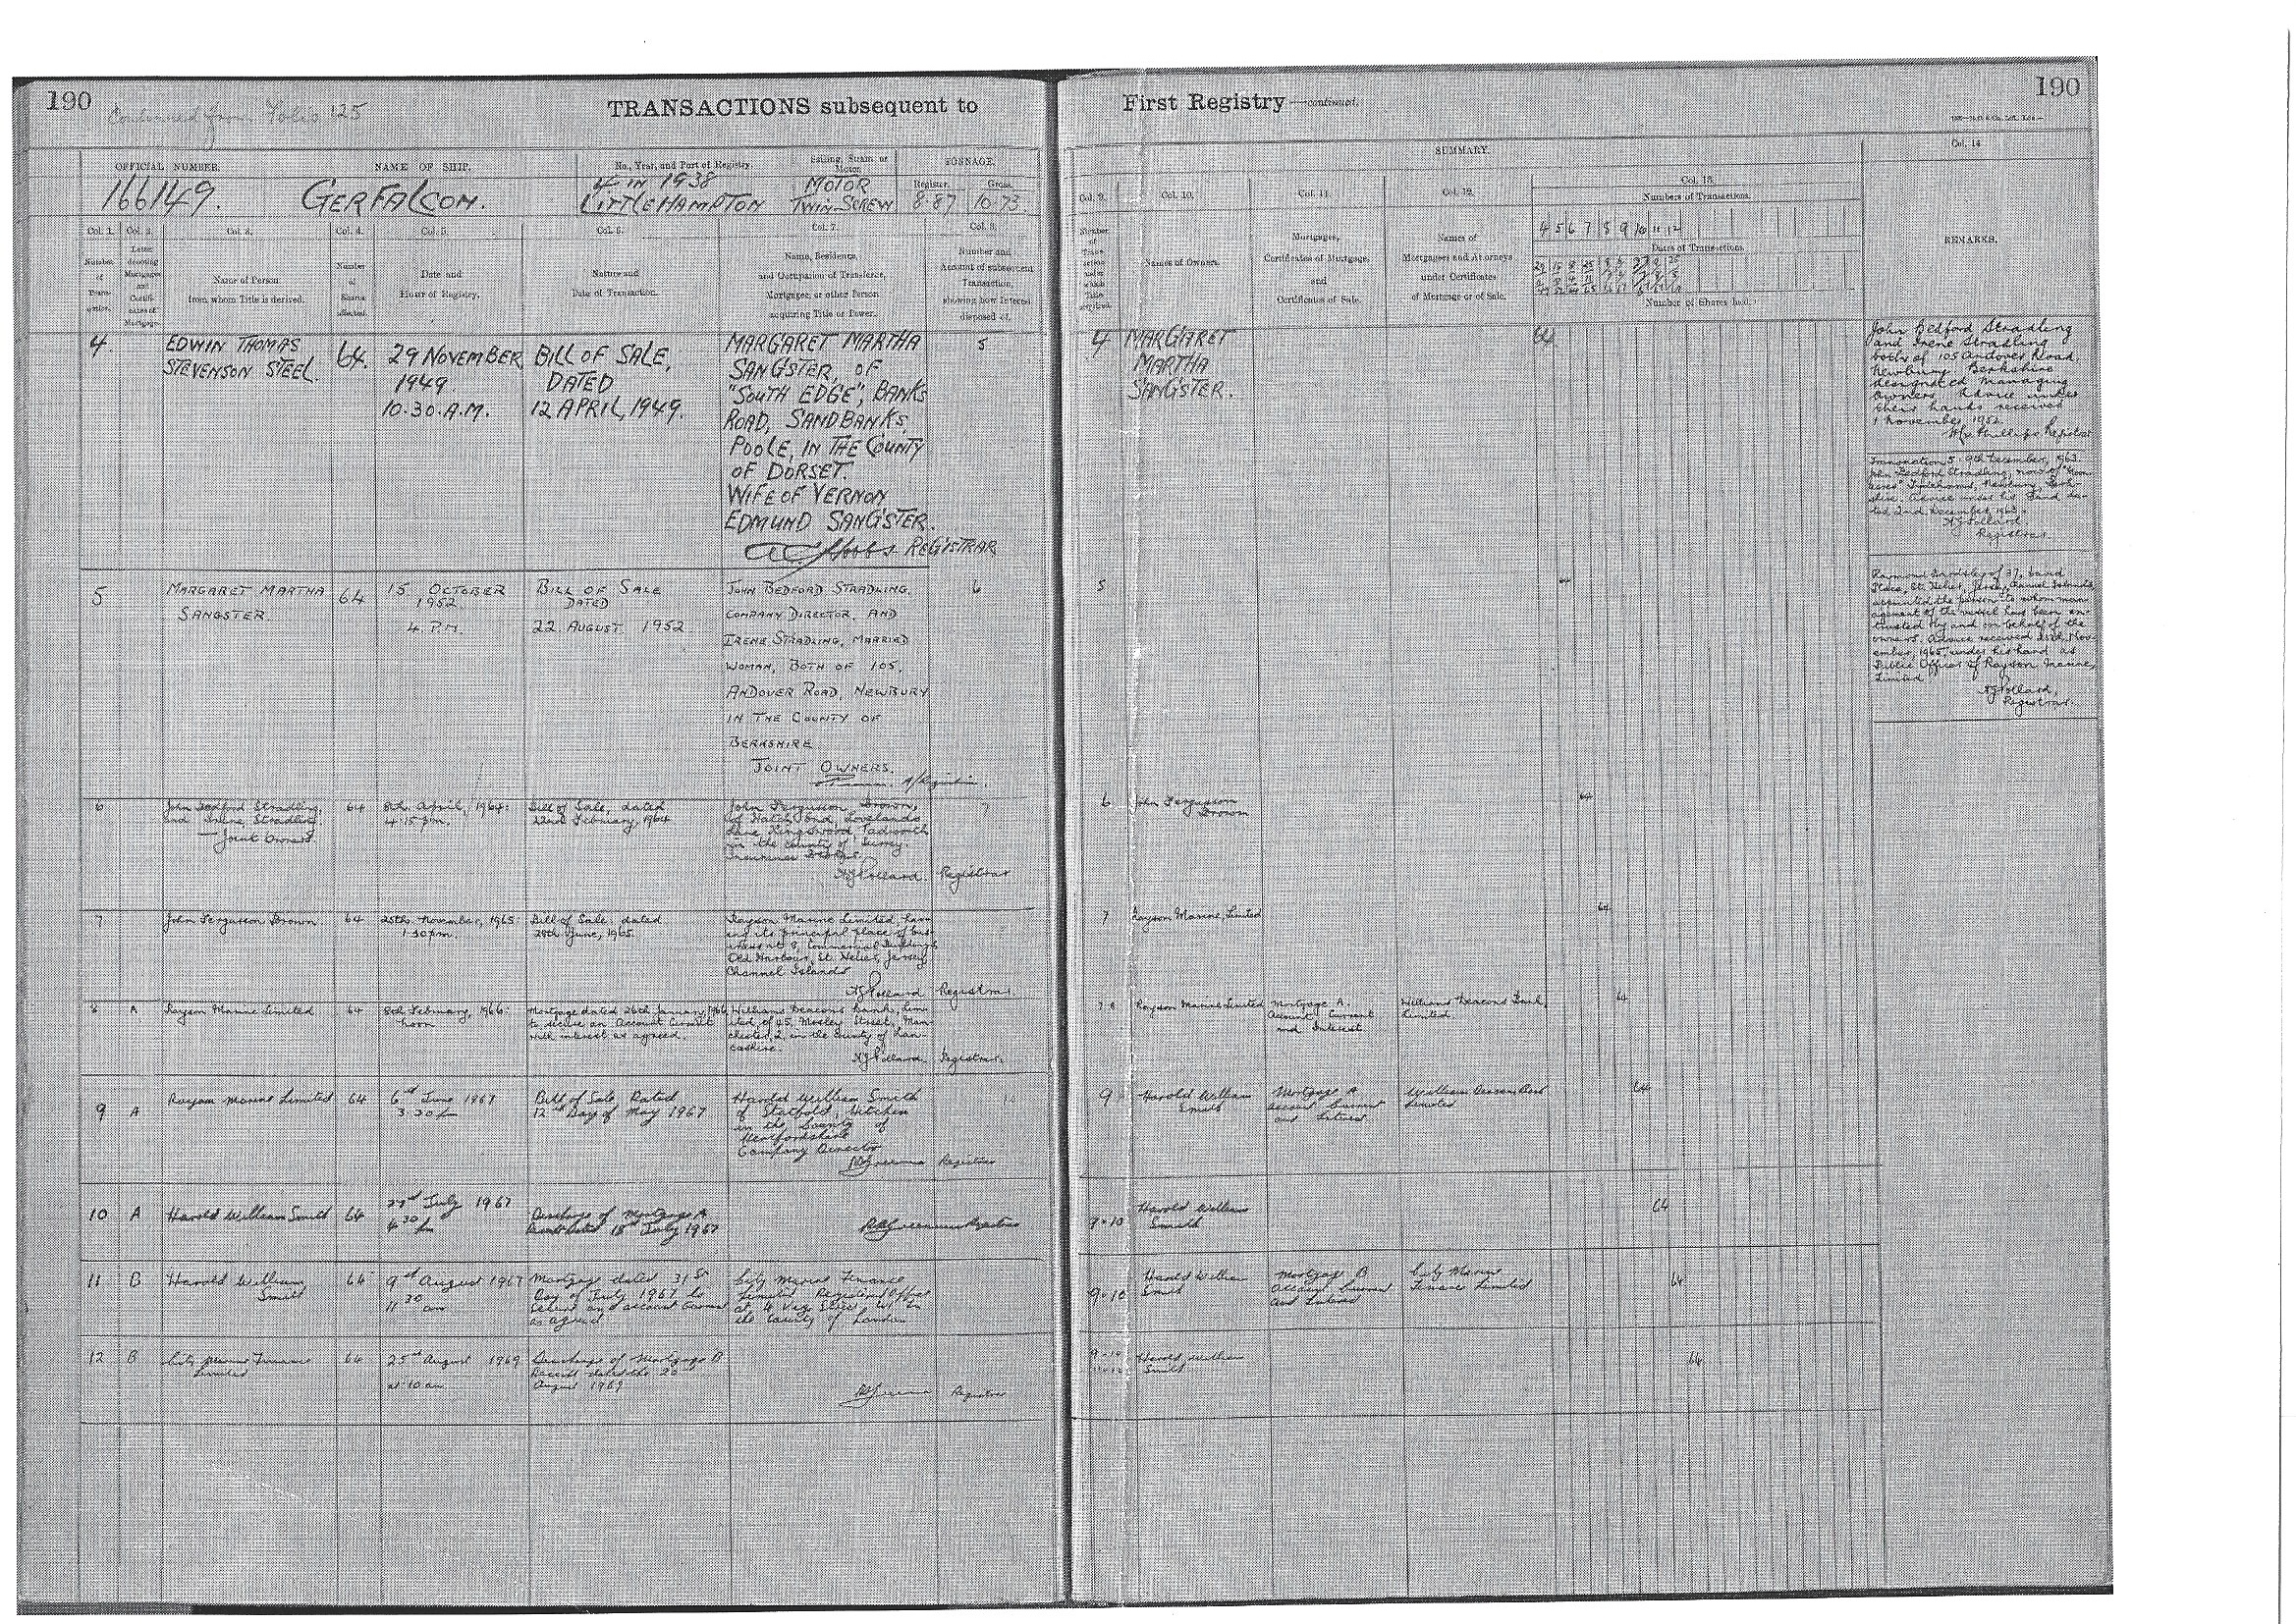 190
Continued from Folio 125
TRANSACTIONS subsequent to
OFFICIAL NUMBER.
NAME OF SHIP.
No., Year, and Part of Registry.
Sailing, Steam or Motor.
TONNAGE.
Register.
Gross.
166149.
GERFALCON.
4 IN 1938
LITTLEHAMPTON
MOTOR
TWIN-SCREW
8.87
10.73
Col. 1.
Col. 2.
Col. 3.
Col. 4.
Col. 5.
Col. 6.
Col. 7.
Col. 8.
Number of Trans-action.
Letter denoting Mortgages and Certifi-cates of Mortgage.
Name of Person
from whom Title is derived.
Number of Shares affected.
Date and
Hour of Registry.
Nature and
Date of Transaction.
Name, Residence,
and Occupation of Transferee,
Mortgagee, or other Person
acquiring Title or Power.
Number and
Amount of subsequent
Transaction,
showing how Interest
disposed of.
4.
EDWIN THOMAS
STEVENSON STEEL.
64.
29 NOVEMBER
1949.
10.30. A.M.
BILL OF SALE,
DATED
12 APRIL, 1949.
MARGARET MARTHA
SANGSTER, OF
"SOUTH EDGE", BANKS
ROAD, SANDBANKS,
POOLE, IN THE COUNTY
OF DORSET.
WIFE OF VERNON
EDMUND SANGSTER.
REGISTRAR
5
5
MARGARET MARTHA
SANGSTER.
64
15 OCTOBER
1952
4. P.M.
BILL OF SALE
DATED
22 AUGUST 1952
JOHN BEDFORD STRADLING,
COMPANY DIRECTOR, AND
IRENE STRADLING, MARRIED
WOMAN, BOTH OF 105,
ANDOVER ROAD, NEWBURY
IN THE COUNTY OF
BERKSHIRE
JOINT OWNERS.
6
6
John Bedford Stradling
and Irene Stradling.
Joint Owners.
64
8th April, 1964.
4.15 pm.
Bill of Sale, dated
22nd February, 1964
John Fergusson Brown,
of Hatch End, Lovelands
Lane, Kingswood, Tadworth
in the county of Surrey.
Insurance Broker
AJPollard. Registrar
7
7
John Fergusson Brown
64
25th November, 1965
1.30 pm.
Bill of Sale, dated
29th June, 1965.
Rayson Marine Limited, hav-
ing its principal place of bus-
iness at 8, Commercial Buildings,
Old Harbour, St. Helier, Jersey,
Channel Islands
AJPollard Registrar.
8
A
Rayson Marine Limited
64
8th February, 1966.
noon
Mortgage dated 26th January, 1966
to secure an Account Current
with interest as agreed.
Williams Deacons Bank, Lim-
ited, of 45, Mosley Street, Man-
chester, 2, in the County of Lan-
cashire.
AJPollard. Registrar.
9
A
Rayson Marine Limited
64
6th June 1967
3.30 pm
Bill of Sale Dated
12th Day of May 1967
Harold William Smith
of Hitchin
in the County of
Hertfordshire
Company Director
Registrar
10
10
A
Harold William Smith
64
July 1967
4.30 pm
Discharge of Mortgage A
July 1967
Registrar
11
B
Harold William
Smith
64
9th August 1967
11.30 am
Mortgage dated 31st
Day of July 1967 to
secure an account current
as agreed
City Marine Finance
Limited Registered Office
at 4 Vere Street, W1 in
the County of London
12
B
City Marine Finance
Limited
64
25th August 1969
at 10 am
Discharge of Mortgage B
Receipt dated the 20
August 1969
Registrar
First Registry—continued.
190
SUMMARY.
Col. 9.
Col. 10.
Col. 11.
Col. 12.
Col. 13.
Col. 14
Number of Trans-action under which Title acquired.
Names of Owners.
Mortgages,
Certificates of Mortgage,
and
Certificates of Sale.
Names of
Mortgagees and Attorneys
under Certificates
of Mortgage or of Sale.
Numbers of Transactions.
4 5 6 7 8 9 10 11 12
Dates of Transactions.
Number of Shares held.
REMARKS.
4
MARGARET
MARTHA
SANGSTER.
64
5
64
6
John Fergusson
Brown
64
7
Rayson Marine, Limited
64
7.8
Rayson Marine Limited
Mortgage A.
Account Current
and Interest
Williams Deacons Bank,
Limited
64
9
Harold William
Smith
Mortgage A
Account Current
and Interest
Williams Deacons Bank
Limited
64
9.10
Harold William
Smith
64
9.10
Harold William
Smith
Mortgage B
Account Current
and Interest
City Marine
Finance Limited
64
Harold William
Smith
64
John Bedford Stradling
and Irene Stradling
both of 105 Andover Road,
Newbury, Berkshire
designated managing
owners. Advice under
their hands received
1 November 1952.
Phillips Registrar
Transaction 5. 9th December, 1963.
John Bedford Stradling, now of
Newbury, Berk-
shire. Advice under his hand da-
ted 2nd December, 1963.
AJPollard
Registrar.
Raymond of 37,
Place, St. Helier, Jersey, Channel Islands,
appointed the person to whom man-
agement of the vessel have been en-
trusted by and on behalf of the
owners. Advice received Nov-
ember, 1965, under his hand as
Public Officer of Rayson Marine,
Limited
AJPollard,
Registrar.